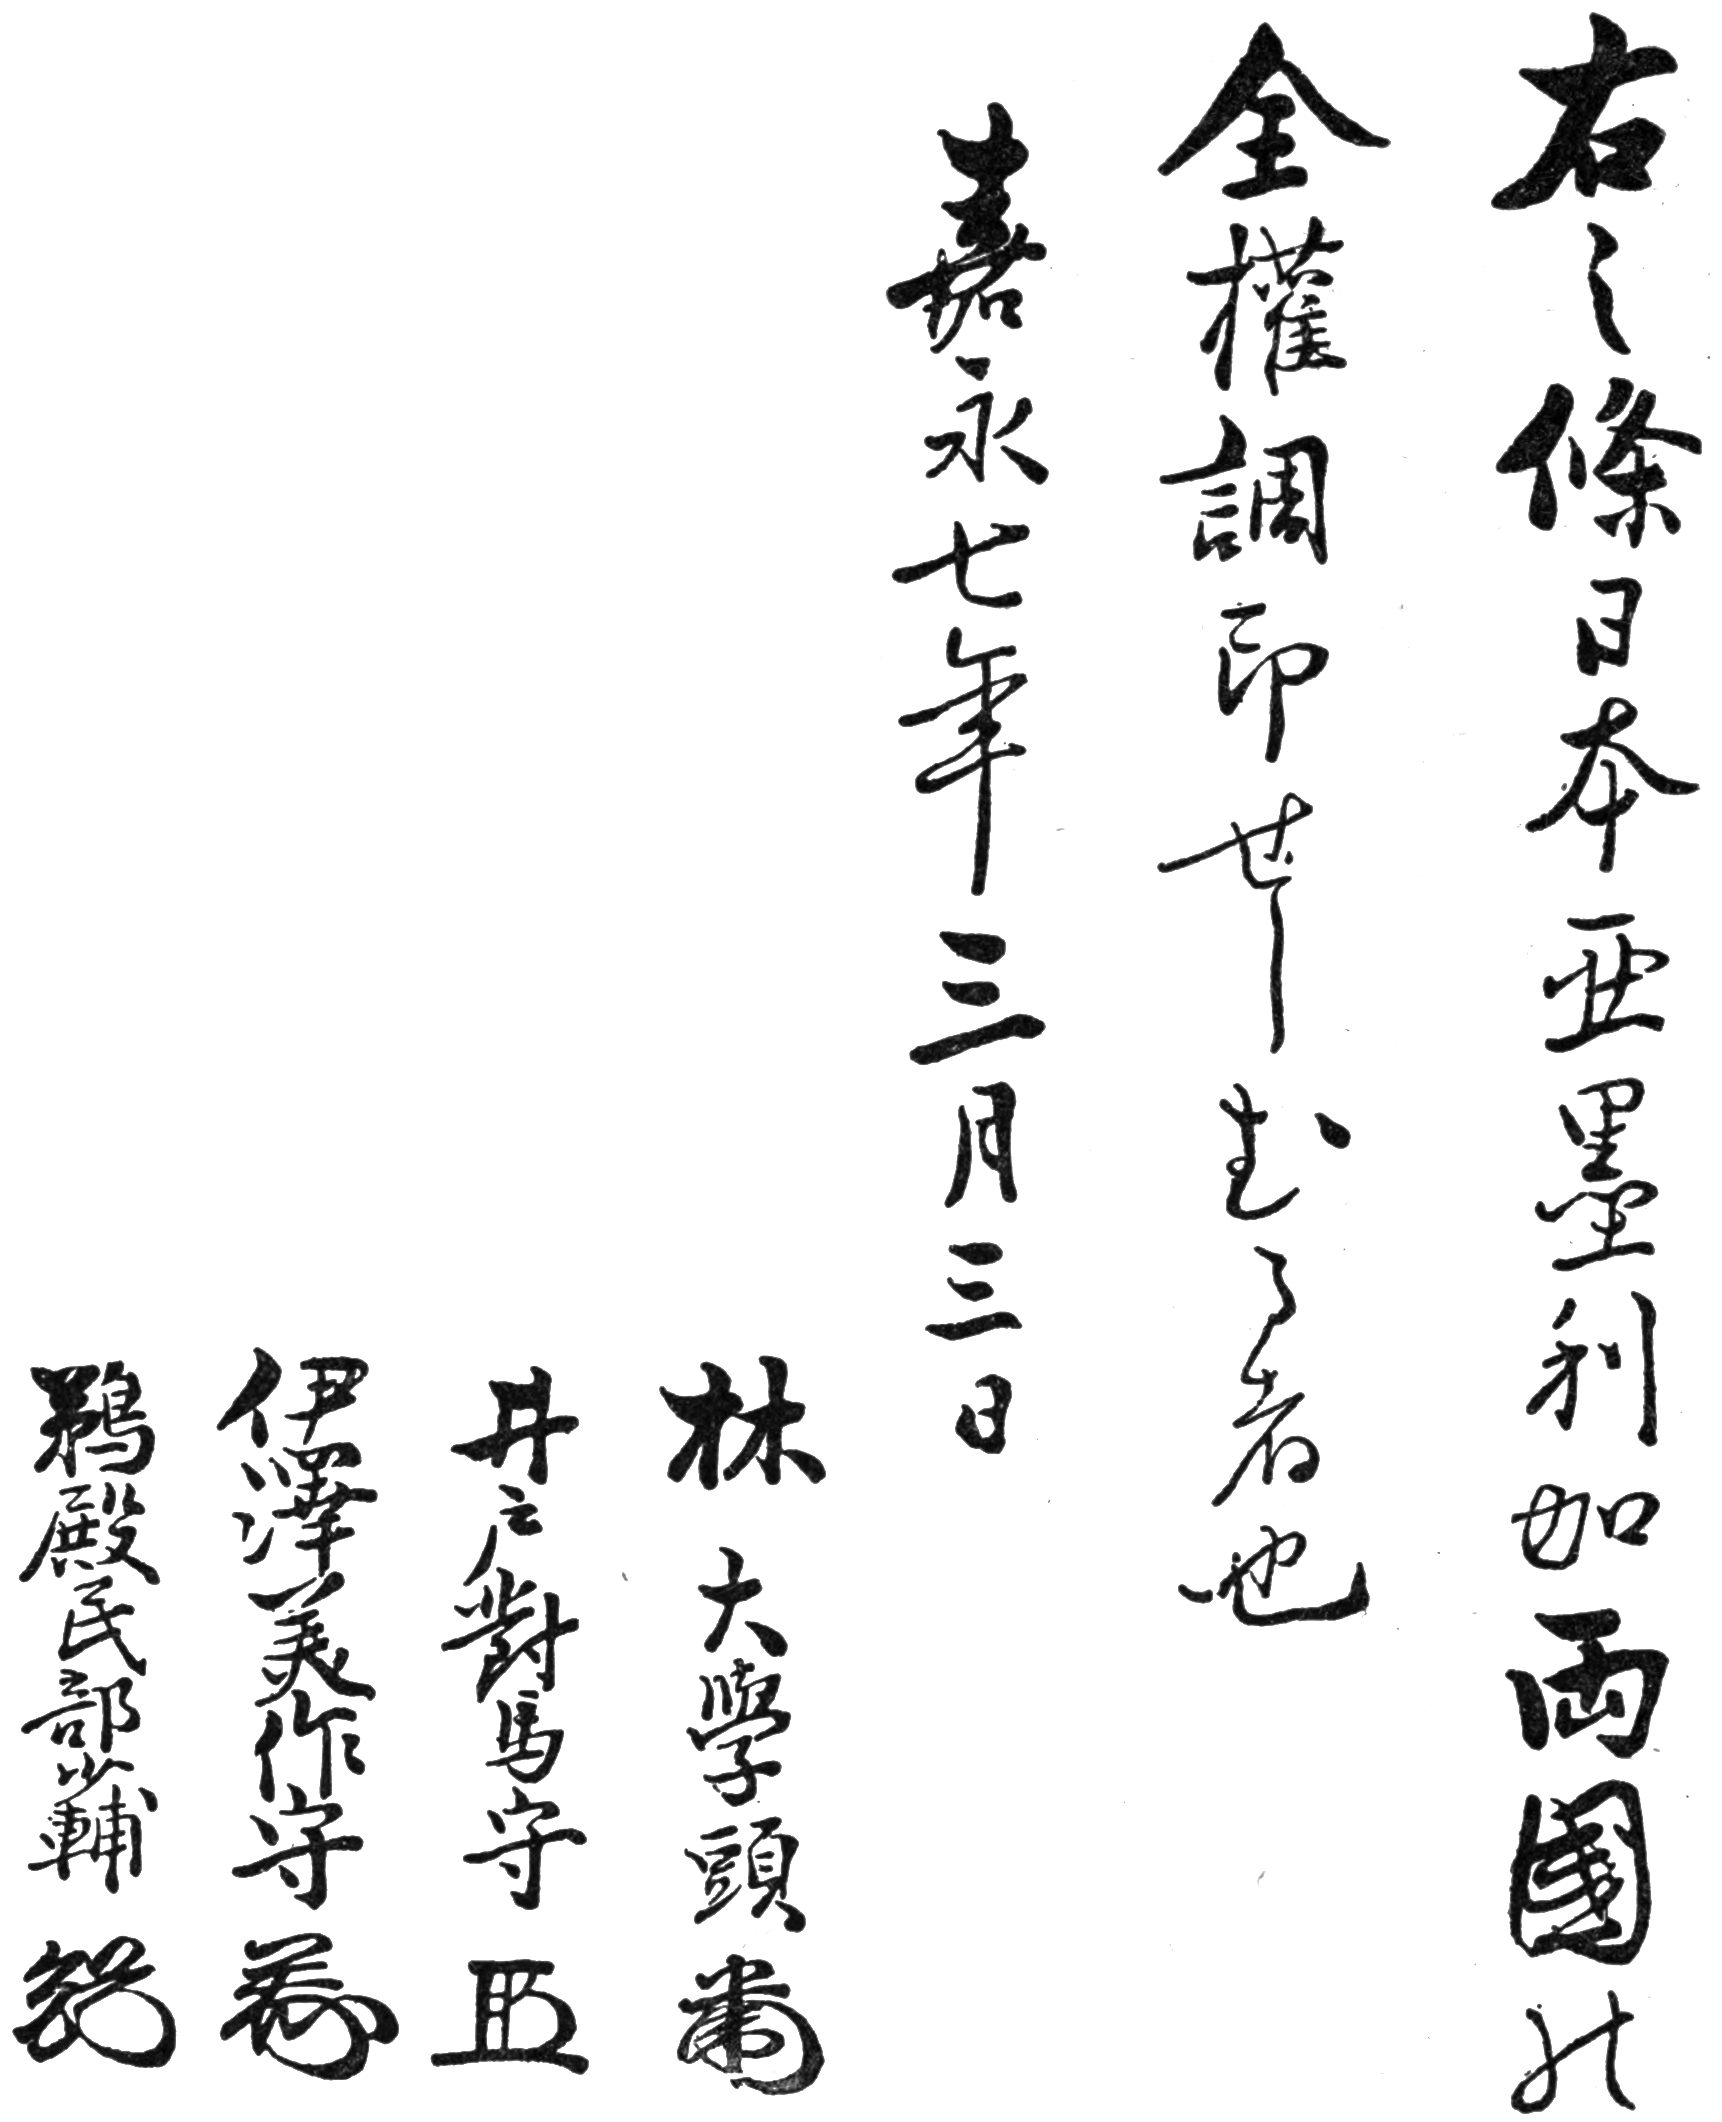 右之條日本亜墨利加両國の
全權調印せしむる者也
嘉永七年三月三日
林 大學頭
井戸對馬守
伊澤美作守
鵜殿民部少輔